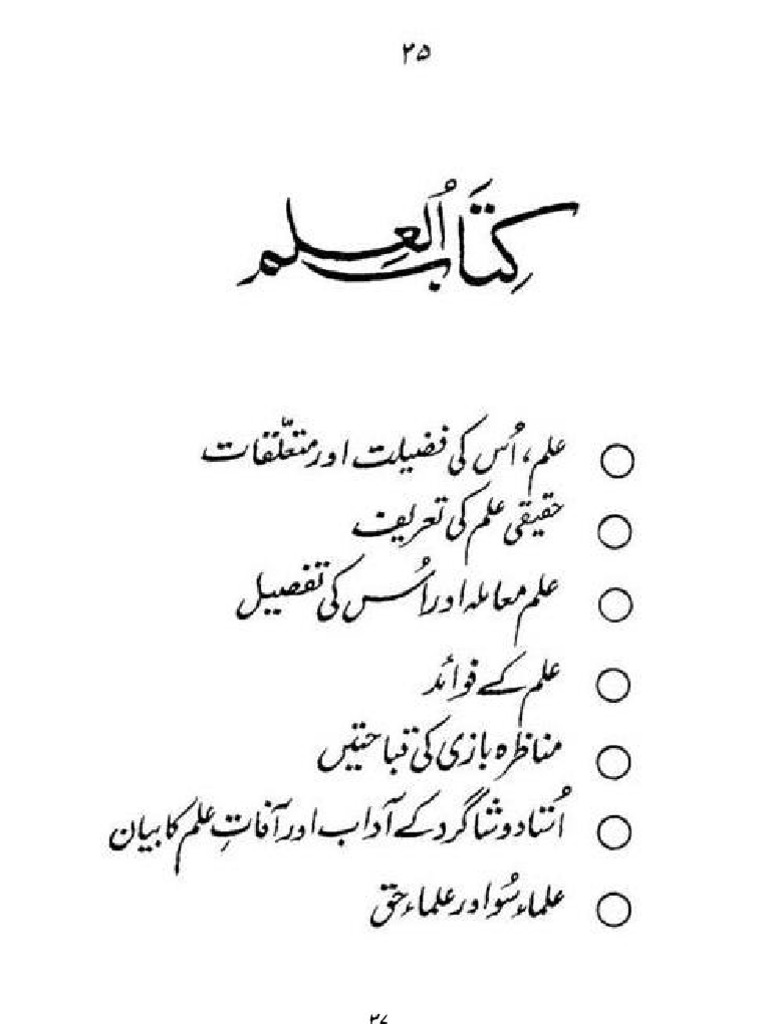 ۲۵
کِتَابُ الْعِلم
علم، اُس کی فضیلت اور متعلّقات
حقیقی علم کی تعریف
علم معاملہ اور اُس کی تفصیل
علم کے فوائد
مناظرہ بازی کی قباحتیں
اُستاد و شاگرد کے آداب اور آفاتِ علم کا بیان
علماء سُو اور علماء حق
۲۷